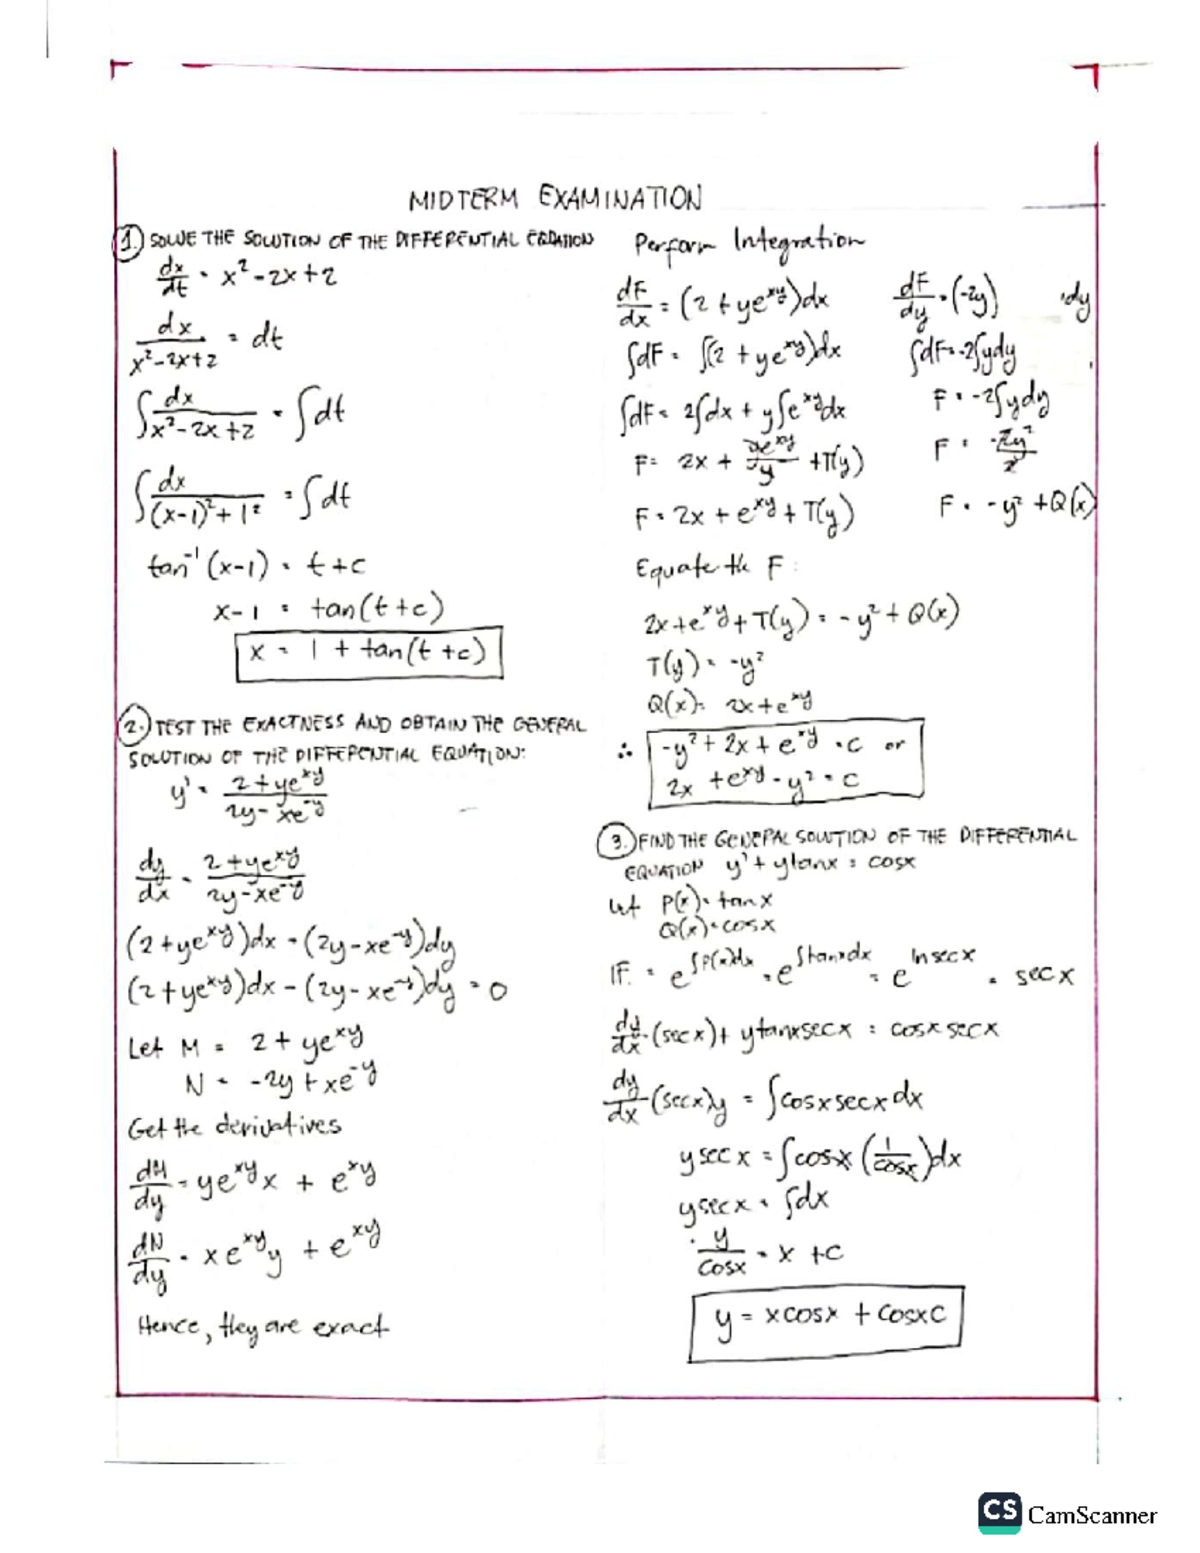 MIDTERM EXAMINATION
1. SOLVE THE SOLUTION OF THE DIFFERENTIAL EQUATION
dx/dt = x² - 2x + 2
dx/(x² - 2x + 2) = dt
∫ dx/(x² - 2x + 2) = ∫ dt
∫ dx/((x-1)² + 1²) = ∫ dt
tan⁻¹ (x-1) = t + c
x - 1 = tan(t + c)
x = 1 + tan(t + c)
2. TEST THE EXACTNESS AND OBTAIN THE GENERAL
SOLUTION OF THE DIFFERENTIAL EQUATION:
y' = (2 + ye^xy)/(2y - xe^-y)
dy/dx = (2 + ye^xy)/(2y - xe^-y)
(2 + ye^xy)dx = (2y - xe^-y)dy
(2 + ye^xy)dx - (2y - xe^-y)dy = 0
Let M = 2 + ye^xy
N = -2y + xe^-y
Get the derivatives
dM/dy = ye^xy x + e^xy
dN/dy = xe^xy y + e^xy
Hence, they are exact
Perform Integration
dF/dx = (2 + ye^xy)dx
∫dF = ∫(2 + ye^xy)dx
∫dF = 2∫dx + y∫e^xy dx
F = 2x + ye^xy/y + T(y)
F = 2x + e^xy + T(y)
dF/dy = (-2y) dy
∫dF = -2∫ydy
F = -2∫ydy
F = -2y²/2
F = -y² + Q(x)
Equate the F:
2x + e^xy + T(y) = -y² + Q(x)
T(y) = -y²
Q(x) = 2x + e^xy
∴ -y² + 2x + e^xy = c or
2x + e^xy - y² = c
3. FIND THE GENERAL SOLUTION OF THE DIFFERENTIAL
EQUATION y' + ytanx = cosx
let P(x) = tanx
Q(x) = cosx
IF = e^∫P(x)dx = e^∫tanxdx = e^lnsecx = secx
dy/dx (secx) + ytanxsecx = cosxsecx
dy/dx (secx)y = ∫cosxsecxdx
ysecx = ∫cosx (1/cosx)dx
ysecx = ∫dx
y/cosx = x + c
y = xcosx + cosxc
CS CamScanner